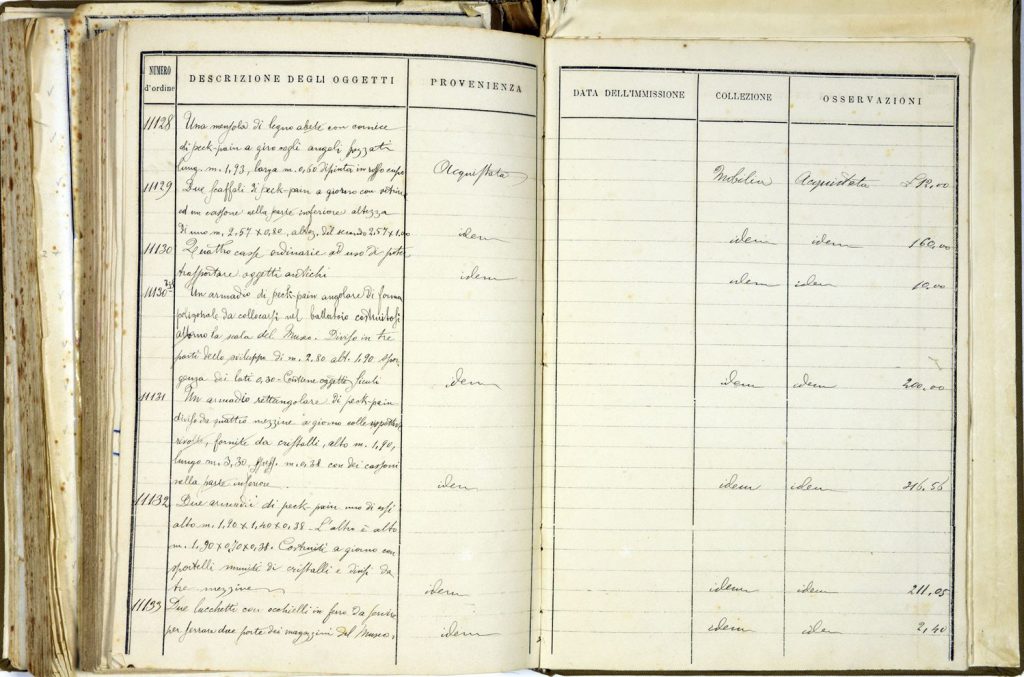 NUMERO d'ordine
DESCRIZIONE DEGLI OGGETTI
PROVENIENZA
DATA DELL'IMMISSIONE
COLLEZIONE
OSSERVAZIONI
11128 Una mensola di legno abete con cornice
di peck-pain a giro sugli angoli
lung. m. 1,93, larga m. 0,60 dipinta in rosso cupo Acquistata Mobilia Acquistata £ 12,00
11129 Due scaffali di peck-pain a giorno con vetrine
ed un cassone nella parte inferiore altezza
di uno m. 2.57 x 0,80, altez. del secondo 2.57 x 1.00 idem idem idem 160,00
11130 Quattro casse ordinarie ad uso di poter
trasportare oggetti antichi idem idem idem 10,00
11130 bis Un armadio di peck-pain angolare di forma
poligonale da collocarsi nel ballatoio costruitosi
attorno la scala del Museo. Diviso in tre
parti dello sviluppo di m. 2.80 alt. 1,90 spor
genza dei lati 0,30 - Contiene oggetti siculi idem idem idem 200,00
11131 Un armadio rettangolare di peck-pain
diviso da quattro mezzine a giorno colle
fornite da cristalli, alto m. 1,90,
lungo m. 3,30 m. 0,38 con dei cassoni
nella parte inferiore idem idem idem 216,56
11132 Due armadii di peck-pain uno di essi
alto m. 1,90 x 1,40 x 0,38 - L'altro è alto
m. 1,90 x 0,90 x 0,38. Costruiti a giorno con
sportelli muniti di cristalli e divisi da
tre mezzine idem idem idem 211,05
11133 Due lucchetti con occhielli in ferro da servire
per serrare due porte dei magazzini del Museo. idem idem idem 2,40